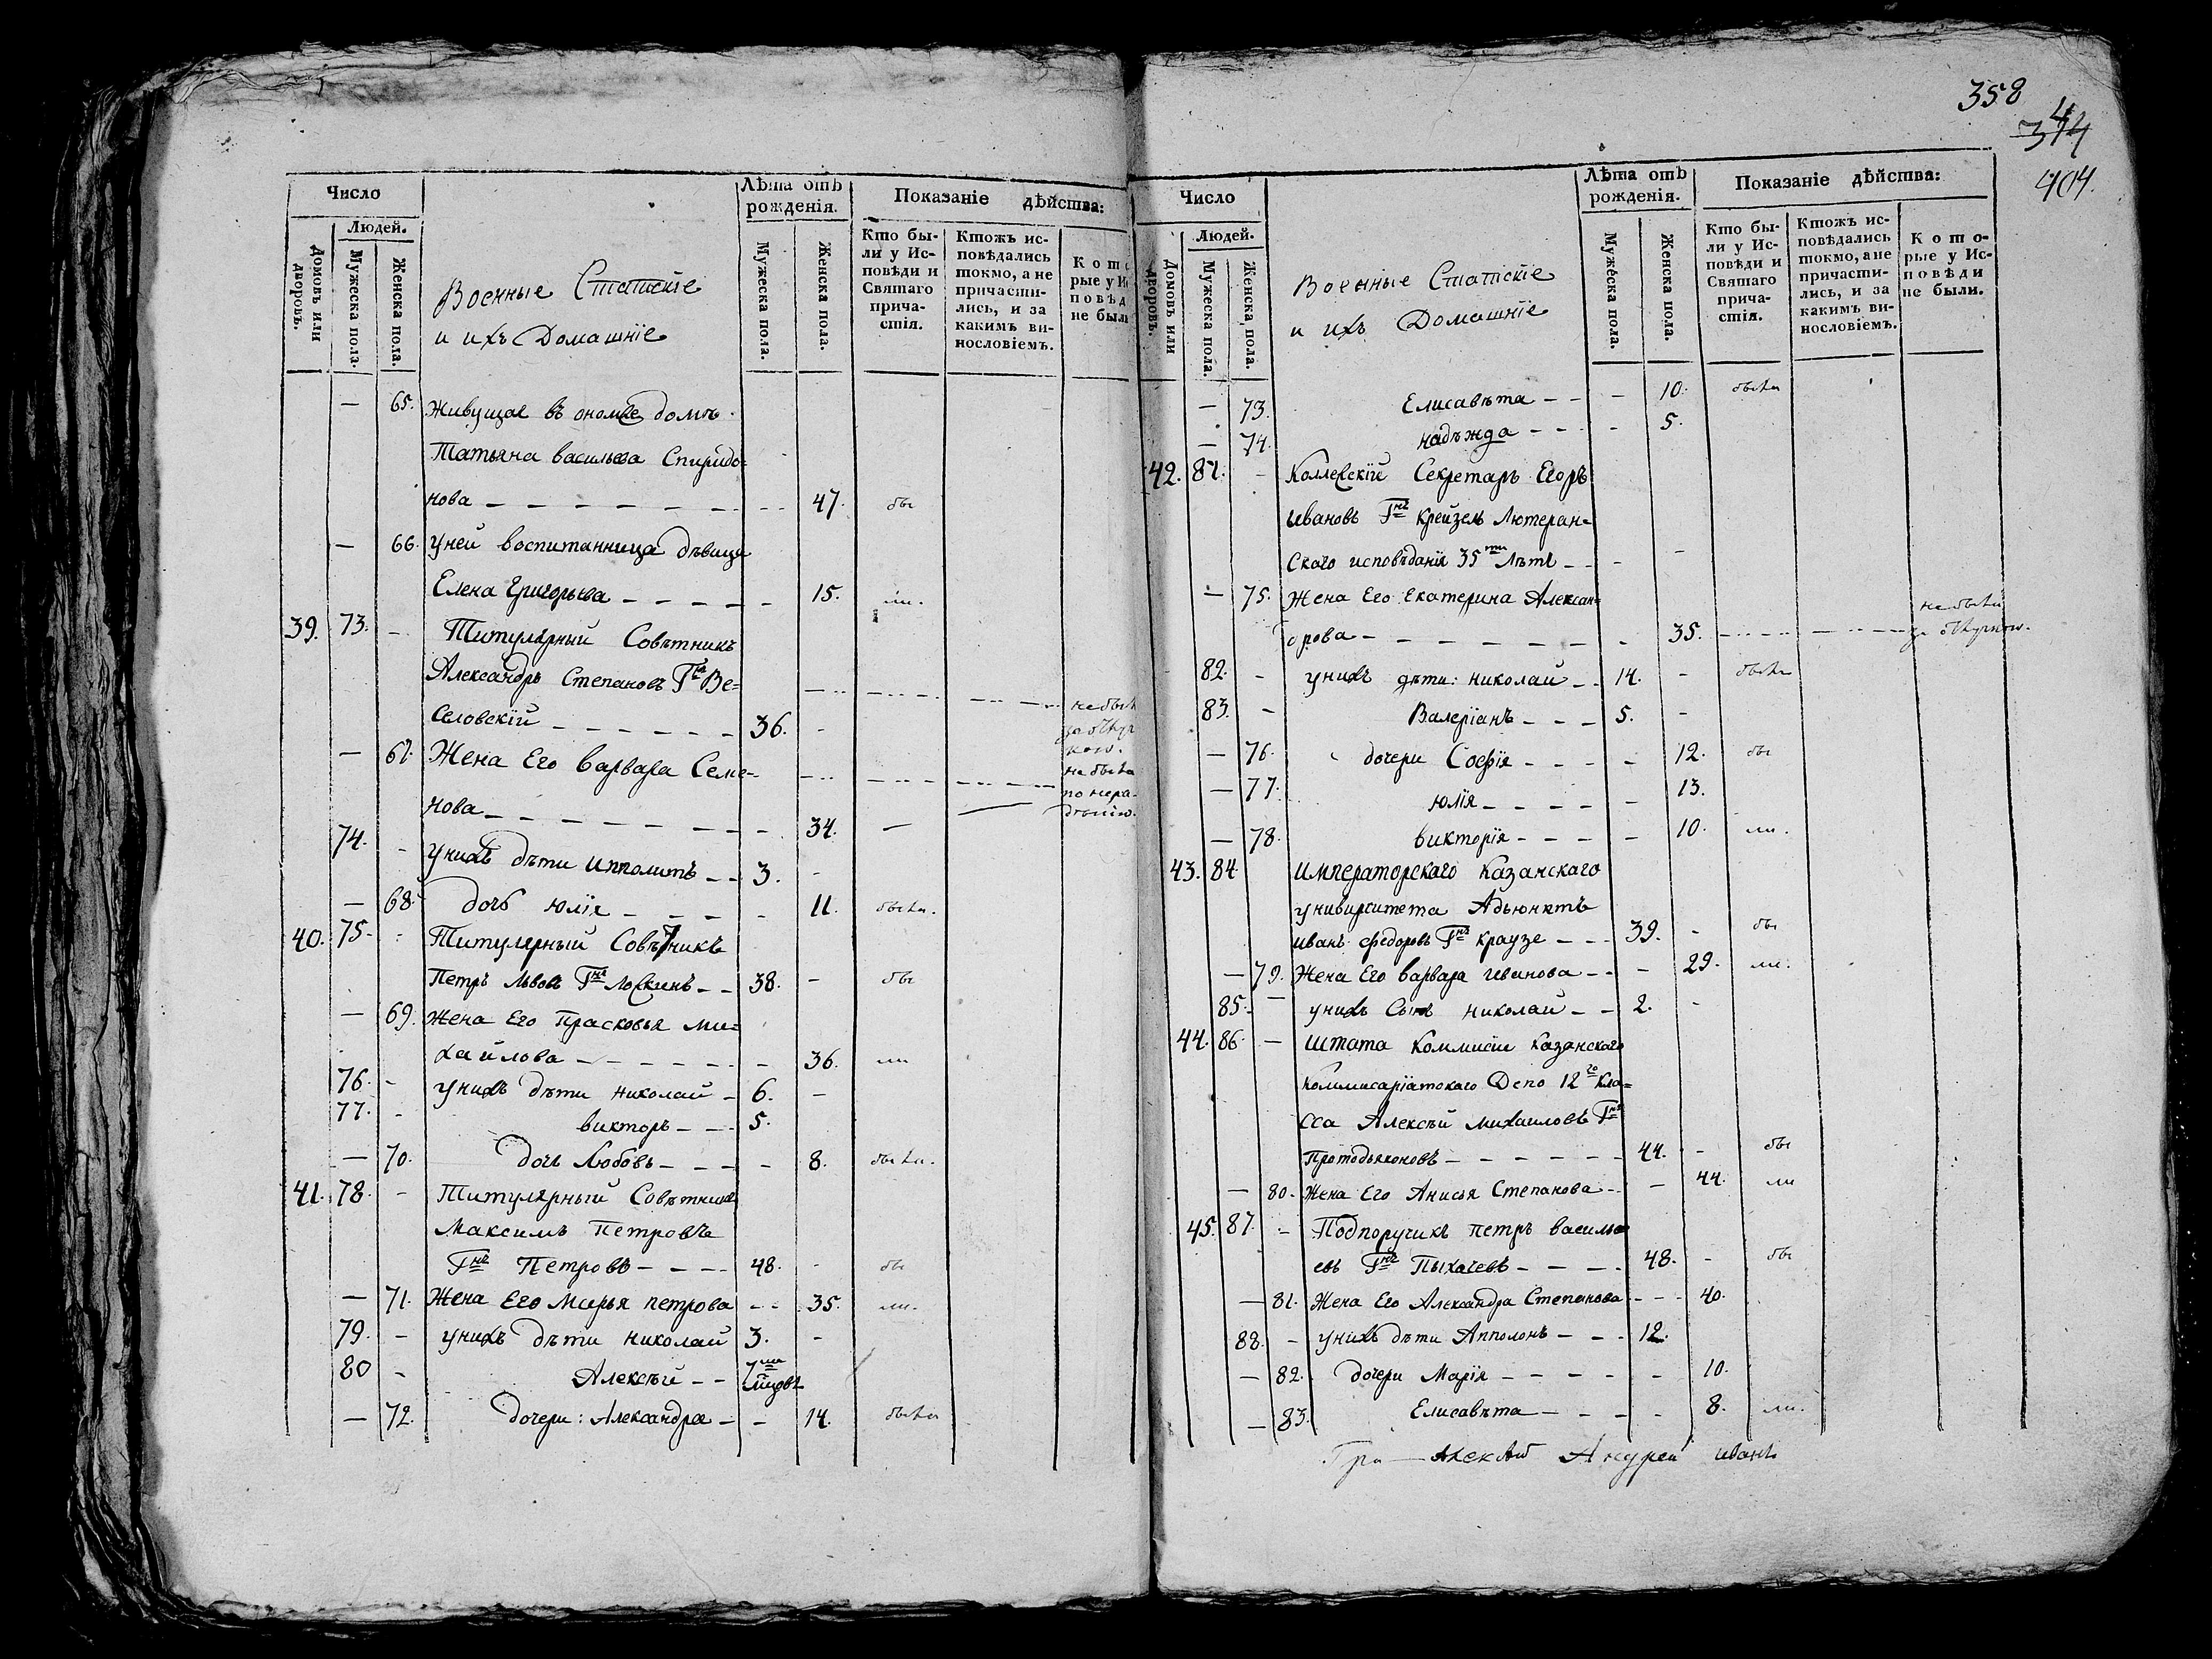 358
374
4
404.
Число
Людей.
Домовъ или дворовъ.
Мужеска пола.
Женска пола.
Военные Статскіе
и ихъ Домашніе
Лѣта отъ
рожденія.
Мужеска пола.
Женска пола.
Показаніе дѣйства:
Кто бы-
ли у Ис-
повѣди и
Святаго
прича-
стія.
Ктожъ ис-
повѣдались
токмо, а не
причасти-
лись, и за
какимъ ви-
нословіемъ.
Кото
рые у Ис
повѣд
не были
— 65. Живущая въ ономже домѣ
Татьяна васильева Спиридо=
нова — — — — — — 47. бы
— 66. унеи воспитанница дѣвица
Елена Григорьева — — — — - 15. ли.
39. 73. - Титулярный Совѣтникъ
Александръ Степановъ Гнъ Ве=
селовскій — — — — — — 36. - не были
за отлуч
кою.
— 67. Жена Его варвара Семе-
нова — — — — — — - 34. — не были
по нера-
дѣнію.
74. - унихъ дѣти Ипполитъ — — 3. -
— 68. дочь юлія — — — - 11. были.
40. 75. - Титулярный Совѣтникъ
Петръ Львовъ Гнъ Лоскинъ — — 38. - бы
— 69. Жена Его Прасковья Ми=
хайлова — — — — — - 36. ли
76. - унихъ дѣти николай — 6. -
77. - викторъ — — 5.
— 70. дочь Любовь — — — - 8. были.
41. 78. - Титулярный Совѣтникъ
Максимъ Петровъ
Гнъ Петровъ — — — 48. - бы
— 71. Жена Его Марья петрова - - 35. ли.
79. - унихъ дѣти николай 3. -
80 - Алексѣй — — 7ми
мцовъ
— 72. дочери: Александра — - 14. были
Число
Людей.
Домовъ или дворовъ.
Мужеска пола.
Женска пола.
Военные Статскіе
и ихъ Домашніе
Лѣта отъ
рожденія.
Мужеска пола.
Женска пола.
Показаніе дѣйства:
Кто бы-
ли у Ис-
повѣди и
Святаго
прича-
стія.
Ктожъ ис-
повѣдались
токмо, а не
причасти-
лись, и за
какимъ ви-
нословіемъ.
Кото-
рые у Ис-
повѣди
не были.
— 73. Елисавѣта — — - 10. были
— 74. надѣжда — — - 5.
42. 81. - Коллежскій Секретарь Егоръ
Ивановъ Гнъ Крейзель Лютеран=
скаго исповѣданія 35ти лѣтъ — — - -
— 75. Жена Его Екатерина Алексан=
дрова — — — — — — - 35. не были
за отлучкою.
82. - унихъ дѣти: николай — — 14. - были
83. - Валеріанъ — — — 5. -
— 76. дочери Софія — — — - 12. бы
— 77. юлія — — — — - 13.
— 78. викторія — — — - 10. ли.
43. 84. Императорскаго Казанскаго
университета Адьюнктъ
иванъ федоровъ Гнъ краузе — — 39. - бы
— 79. Жена Его варвара иванова — — - 29. ли.
85. — унихъ Сынъ николай — — 2. -
44. 86. — штата Коммисіи Казанскаго
Коммисаріатскаго Депо 12го Кла=
сса Алексѣй михаиловъ Гнъ
Протодьяконовъ — — — — — 44. - бы
— 80. Жена Его Анисья Степанова — - 44. ли
45. 87. - Подпоручикъ петръ василь
евъ Гнъ Пыхачевъ — — — 48. - бы
— 81. Жена Его Александра Степанова - - - 40.
88. - унихъ дѣти Апполонъ — — 12.
— 82. дочери Марія — — — — - 10.
— 83. Елисавѣта — — — - 8. ли.
Андрей иванъ